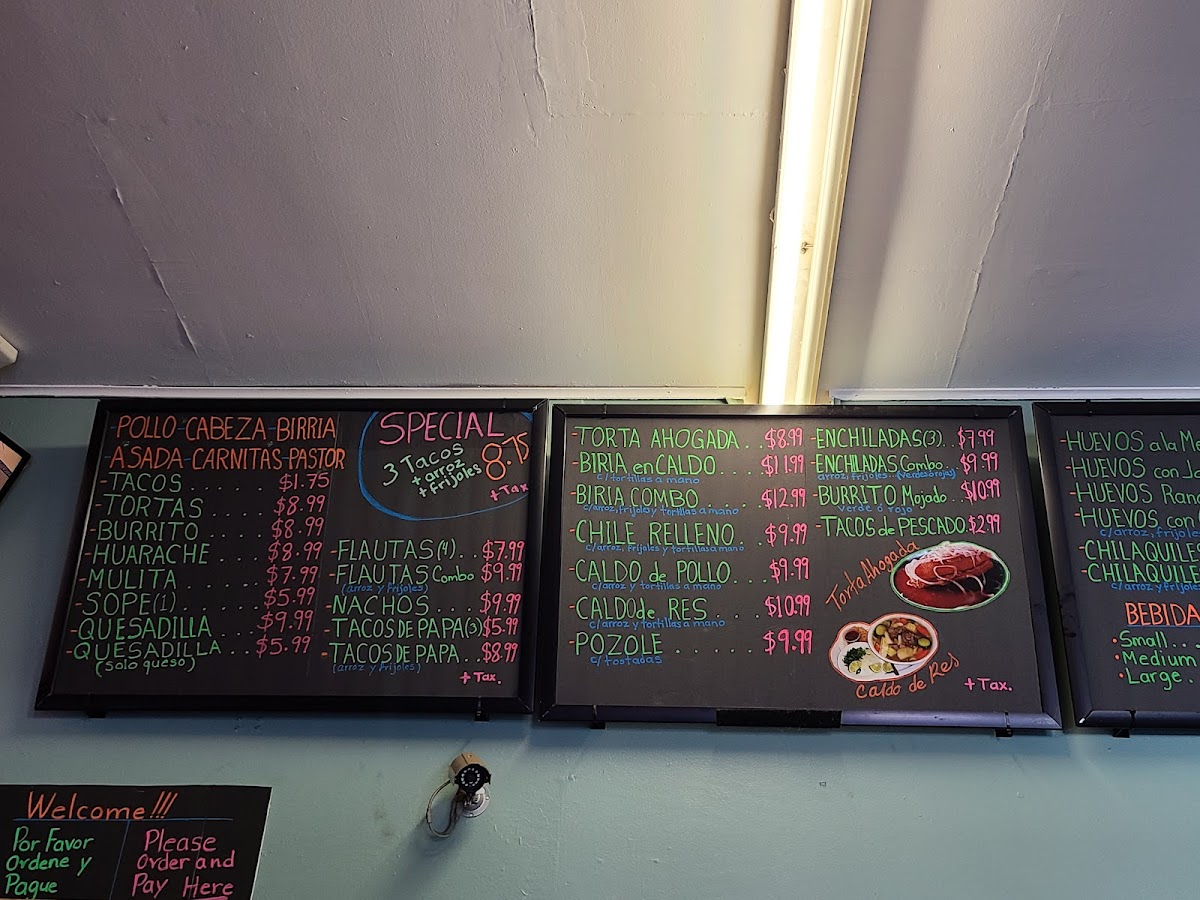 POLLO-CABEZA-BIRRIA
-ASADA-CARNITAS-PASTOR
-TACOS ........ $1.75
-TORTAS ...... $8.99
-BURRITO ..... $8.99
-HUARACHE .... $8.99
-MULITA ...... $7.99
-SOPE(1) ...... $5.99
-QUESADILLA ... $9.99
-QUESADILLA ... $5.99
(solo queso)
SPECIAL
3 Tacos
+ arroz
+ frijoles
8.75
+Tax
-FLAUTAS (4) ... $7.99
-FLAUTAS Combo $9.99
(arroz y frijoles)
NACHOS .... $9.99
-TACOS DE PAPA (3) $5.99
-TACOS DE PAPA .. $8.99
(arroz y frijoles)
+Tax.
-TORTA AHOGADA .. $8.99
-BIRIA en CALDO ... $11.99
c/tortillas a mano
-BIRIA COMBO ... $12.99
c/arroz, frijoles y tortillas a mano
-CHILE RELLENO ... $9.99
c/arroz, frijoles y tortillas a mano
-CALDO de POLLO ... $9.99
c/arroz y tortillas a mano
-CALDO de RES ... $10.99
c/arroz y tortillas a mano
-POZOLE ...... $9.99
c/tostadas
-ENCHILADAS(3) .. $7.99
-ENCHILADAS Combo .. $9.99
arroz, frijoles ... (verdes o rojas)
-BURRITO Mojado .. $10.99
verde o rojo
-TACOS de PESCADO $2.99
Torta Ahogada
Caldo de Res
+Tax.
-HUEVOS a la
-HUEVOS con
-HUEVOS
-HUEVOS con
c/arroz,
-CHILAQUILE
-CHILAQUILE
c/arroz y
BEBIDA
•Small ...
•Medium
•Large ..
Welcome!!!
Por Favor
Ordene y
Pague
Please
Order and
Pay Here